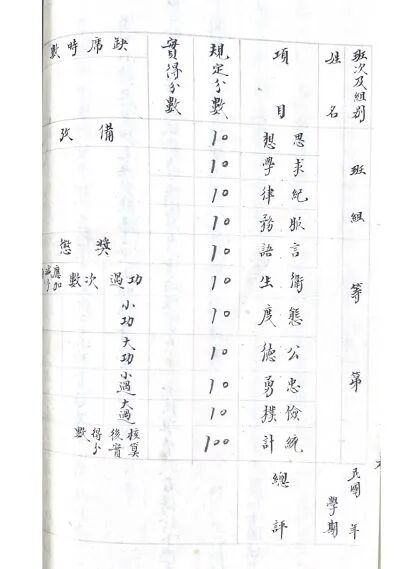 班次及組别
班 組 等 第
民國 年
學期
姓名
項目
思想
求學
紀律
服務
言語
衛生
態度
公德
忠勇
儉樸
統計
總評
規定分數
10
10
10
10
10
10
10
10
10
10
100
實得分數
缺席時數
備攷
獎懲
功過次數
應加減分
小功
大功
小過
大過
核算後實得分數